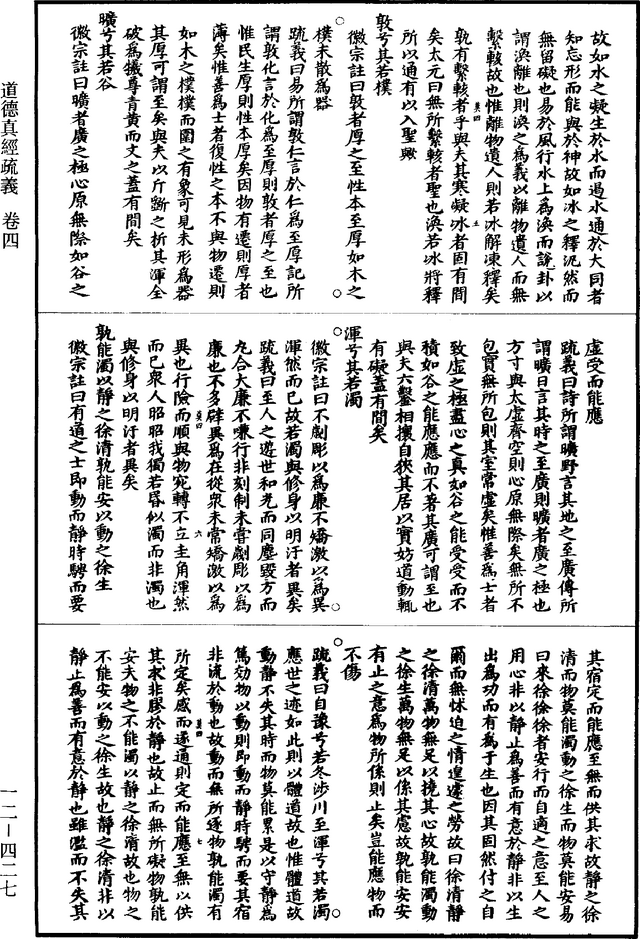 道德真經疏義　卷四
一二—四二七
故如水之凝生於水而過水通於大同者
知忘形而能與於神故如冰之釋泥然而
無留礙也易於風行水上為渙而說卦以
謂渙離也則渙之為義以離物遺人而無
繫輆故也惟離物遺人則若冰解凍釋矣
孰有繫輆者乎與夫其寒凝冰者固有間
矣太元曰無所繫輆者聖也渙若冰將釋
所以通有以入聖歟
敦兮其若樸
徽宗註曰敦者厚之至性本至厚如木之
樸未散為器
疏義曰易所謂敦仁言於仁為至厚記所
謂敦化言於化為至厚則敦者厚之至也
惟民生厚則性本厚矣因物有遷則厚者
薄矣惟善為士者復性之本不與物遷則
如木之樸樸而圍之有象可見未形為器
其厚可謂至矣與夫以斤斲之析其渾全
破為犧尊青黃而文之蓋有間矣
曠兮其若谷
徽宗註曰曠者廣之極心原無際如谷之
虛受而能應
疏義曰詩所謂曠野言其地之至廣傳所
謂曠日言其時之至廣則曠者廣之極也
方寸與太虛齊空則心原無際矣無所不
包實無所包則其室常虛矣惟善為士者
致虛之極盡心之真如谷之能受受而不
積如谷之能應應而不著其廣可謂至也
與夫六鑿相攘自狹其居以實妨道動輒
有礙蓋有間矣
渾兮其若濁
徽宗註曰不劌彫以為廉不矯激以為異
渾然而已故若濁與修身以明汙者異矣
疏義曰至人之遊世和光而同塵毀方而
九合大廉不嗛行非刻制未嘗劌彫以為
廉也不多辟異為在從衆未常矯激以為
異也行險而順與物宛轉不立主角渾然
而已衆人昭昭我獨若昏似濁而非濁也
與修身以明汙者異矣
孰能濁以靜之徐清孰能安以動之徐生
徽宗註曰有道之士即動而靜時騁而要
其宿定而能應至無而供其求故靜之徐
清而物莫能濁動之徐生而物莫能安易
曰來徐徐徐者安行而自適之意至人之
用心非以靜止為善而有意於靜非以生
出為功而有為于生也因其固然付之自
爾而無怵迫之情遑遽之勞故曰徐清靜
之徐清萬物無足以撓其心故孰能濁動
之徐生萬物無足以係其慮故孰能安安
有止之意為物所係則止矣豈能應物而
不傷
疏義曰自豫兮若冬涉川至渾兮其若濁
應世之迹如此則以體道故也惟體道故
動靜不失其時而物莫能累是以守靜為
篤効物以動則即動而靜時騁而要其宿
非流於動也故動而無所逐物孰能濁有
所定矣感而遂通則定而能應至無以供
其求非膠於靜也故止而無所礙物孰能
安夫物之不能濁以靜之徐清故也物之
不能安以動之徐生故也靜之徐清非以
靜止為善而有意於靜也雖濫而不失其